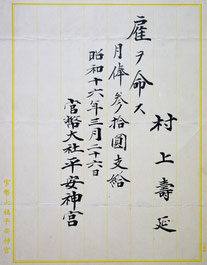 村上壽延
雇ヲ命ス
月俸参拾圓支給
昭和十六年三月二十六日
官幣大社平安神宮
官幣大社平安神宮